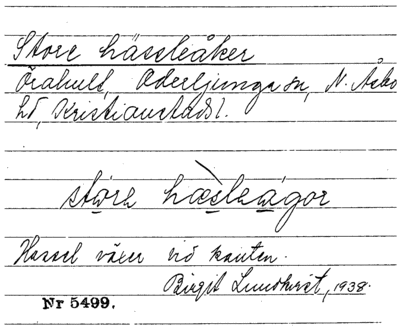 Store hässleåker
Örahult, Oderljunga sn, N. Åsbo
hd, Kristianstads l.
störe hæsleágor
Hassel växer vid kanten.
Birgit Lundkvist, 1938.
Nr 5499.